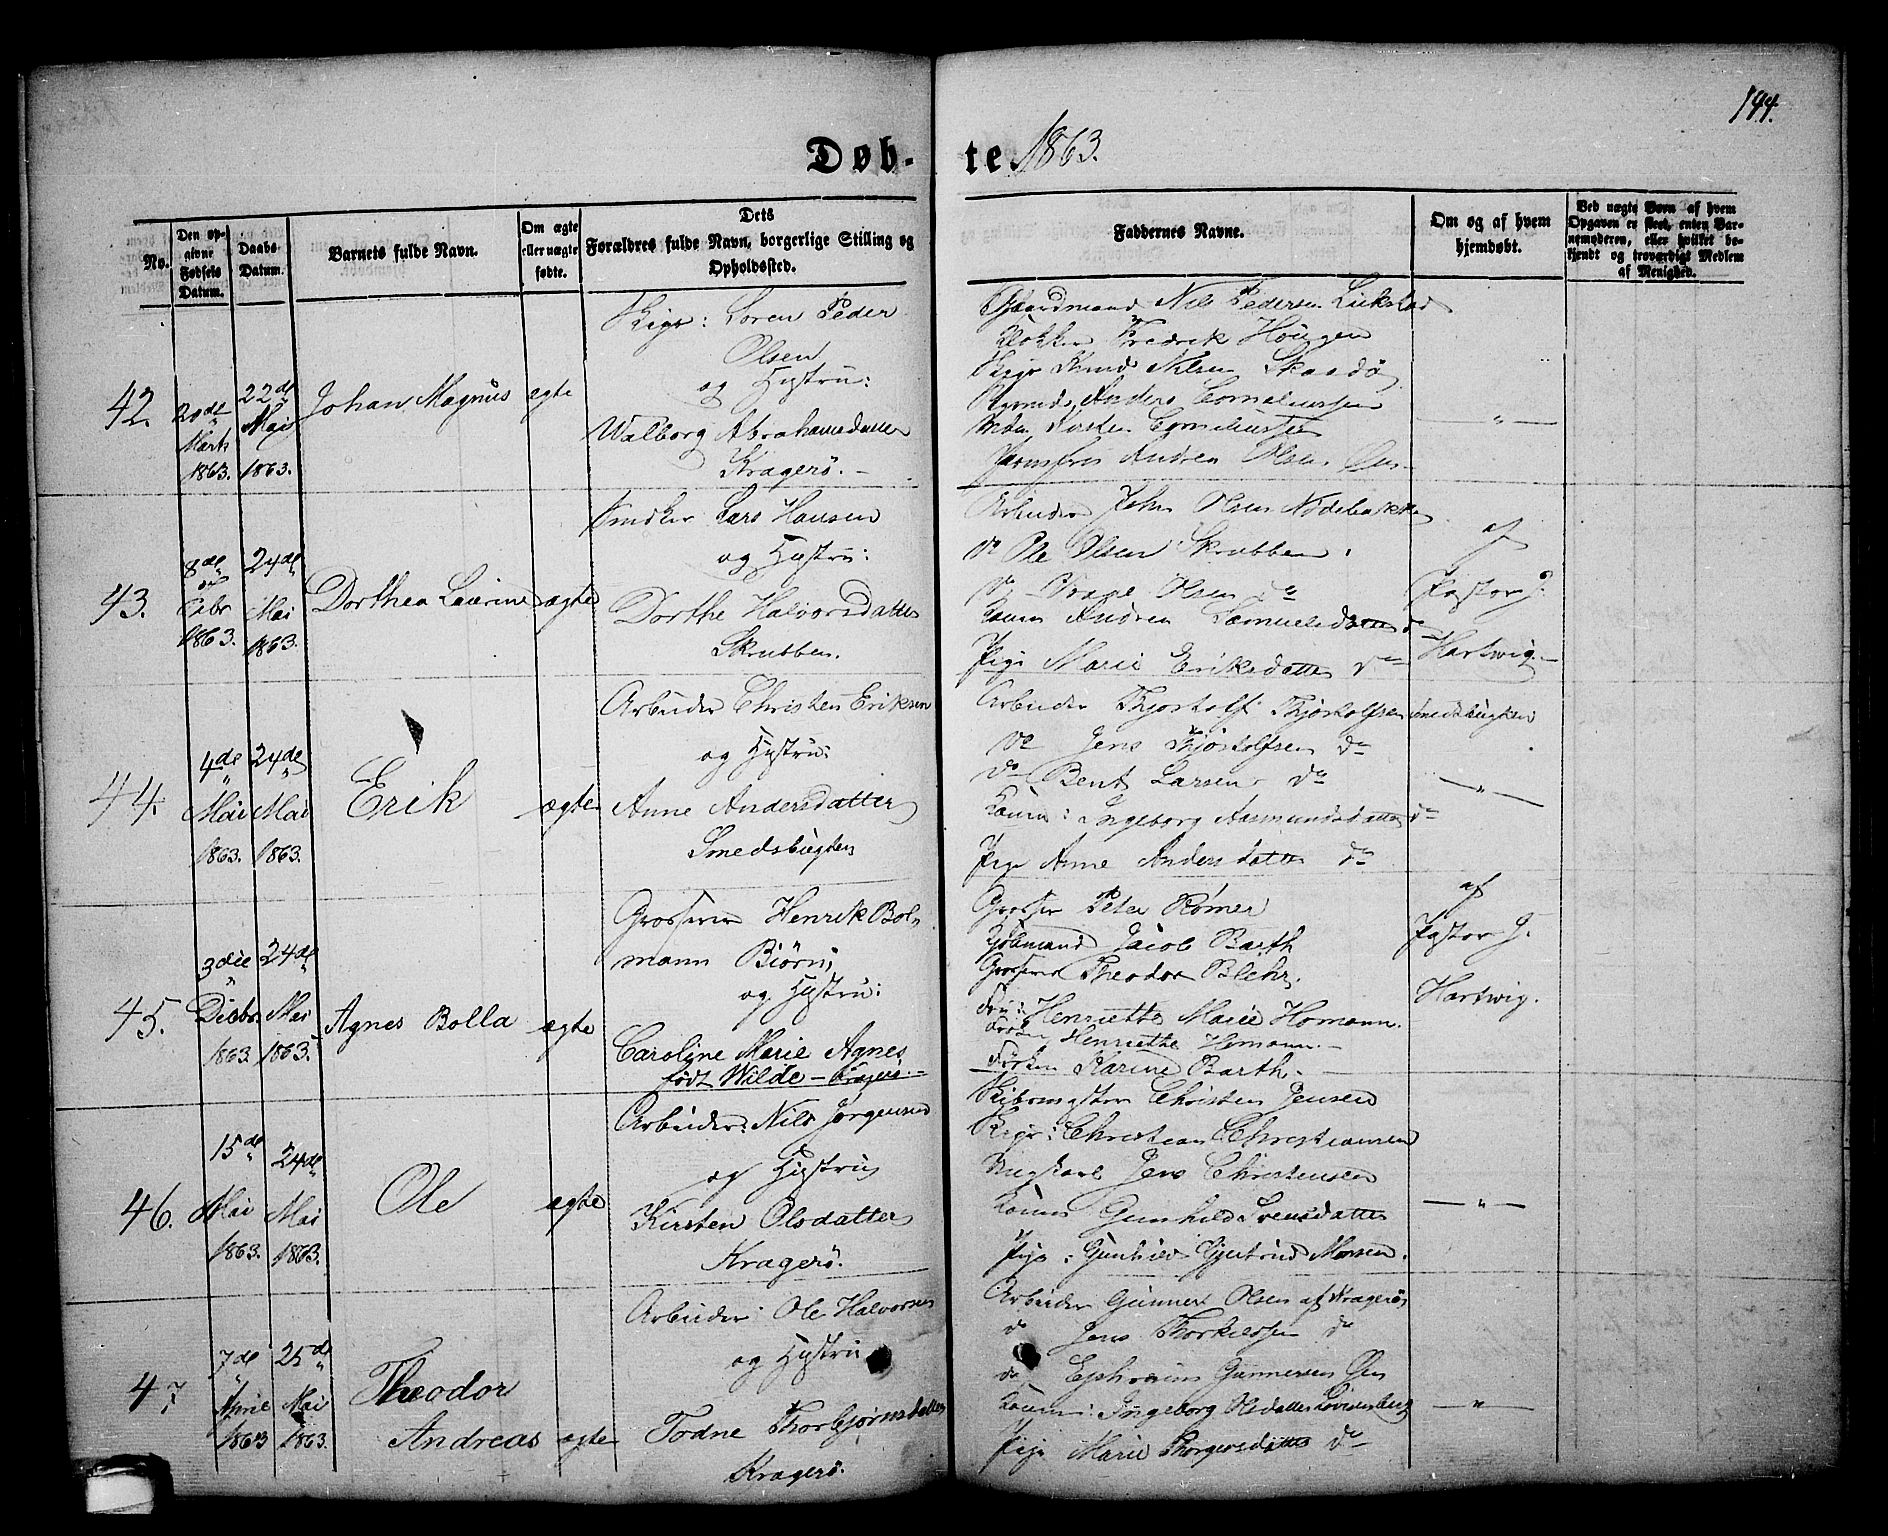 144.
Døb-te 1863.
No.
Den op-
givne
Fødsels
Datum.
Daabs-
Datum.
Barnets fulde Navn.
Om ægte
eller uægte
fødte.
Dets
Forældres fulde Navn, borgerlige Stilling og
Opholdssted.
Faddernes Navne.
Om og af hvem
hjemdøbt.
Ved uægte Børn af hvem
Opgaven er skeet, enten Bar-
nemoderen, eller hvilket be-
kjendt og troværdigt Medlem
af Menighed.
42.
Marts
1863.
22de
Mai
1863.
Johan Magnus
ægte
Soren Peder
Olsen
og Hustru:
Walborg Abrahamsdatter
Kragerø.
Gaardmand Nils Pedersen
Klokker Fredrik Hougen
Knud Nilsen Skaadø
Anders Corneliussen
Corneliussen
Jomfru Andrea Olsen
— " —
43.
8de
Febr
1863.
24de
Mai
1863.
Dorthea Laurine
ægte
Lars Hansen
og Hustru:
Dorthe Halvorsdatter
Skrubben.
Arbeider John Olsen
do Ole Olsen Skrubben
do Olsen do
Kone Andrea Samuelsdatter do
Pige Marie Eriksdatter do
af
Pastor J.
Hartwig.
44.
4de
Mai
1863.
24de
Mai
1863.
Erik
ægte
Arbeider Christen Eriksen
og Hustru:
Anne Andersdatter
Smedsbugten
Arbeider Thjostolf Thjostolfsen Smedsbugten
do Jens Thjostolfsen do
do Bent Larsen do
Kone: Ingeborg Aasmundsdatter do
Pige Anne Andersdatter do
— " —
45.
3die
1863.
24de
Mai
1863.
Agnes Bolla
ægte
Grosserer Henrik Bol-
mann Biørn,
og Hustru:
Caroline Marie Agnes
født Wilde – Kragerø.
Grosserer Peter Rømer
Kjøbmand Jacob Barth
Grosserer Theodor Blehr.
Fru: Henriette Marie Homann.
Frøken Henriette Homann.
Frøken Karine Barth.
af
Pastor J.
Hartwig.
46.
15de
Mai
1863.
24de
Mai
1863.
Ole
ægte
Arbeider: Nils Jørgensen
og Hustru
Kirsten Olsdatter
Kragerø.
Christen Jensen
Christian Christiansen
Ungkarl Jens Christensen
Kone Gunhild Svensdatter
Pige: Gunhild Gjertrud
— " —
47
7de
April
1863
25de
Mai
1863.
Theodor
Andreas
ægte
Arbeider: Ole Halvorsen
og Hustru
Todne Thorbjørnsdatter
Kragerø.
Arbeider Gunner Olsen af Kragerø
do Jens Thorkildsen do
do Ephraim Gunnersen
Kone: Ingeborg Olsdatter
Pige Marie Thorgersdatter do
— " —